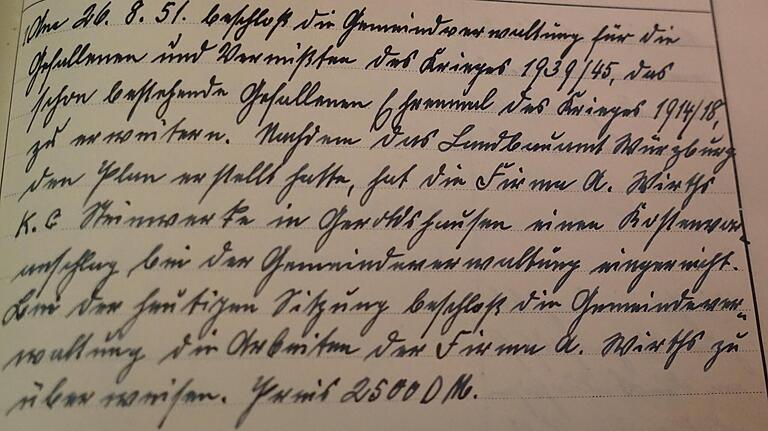 Am 26. 8. 51. beschloß die Gemeindeverwaltung für die
Gefallenen und Vermißten des Krieges 1939/45, das
schon bestehende Gefallenen Ehrenmal des Krieges 1914/18,
zu erweitern. Nachdem das Landbauamt Würzburg
den Plan erstellt hatte, hat die Firma A. Wirths
K.G Steinwerke in Geroldshausen einen Kostenvor-
anschlag bei der Gemeindeverwaltung eingereicht.
Bei der heutigen Sitzung beschloß die Gemeindever-
waltung die Arbeiten der Firma A. Wirths zu
über weisen. Preis 2500 DM.